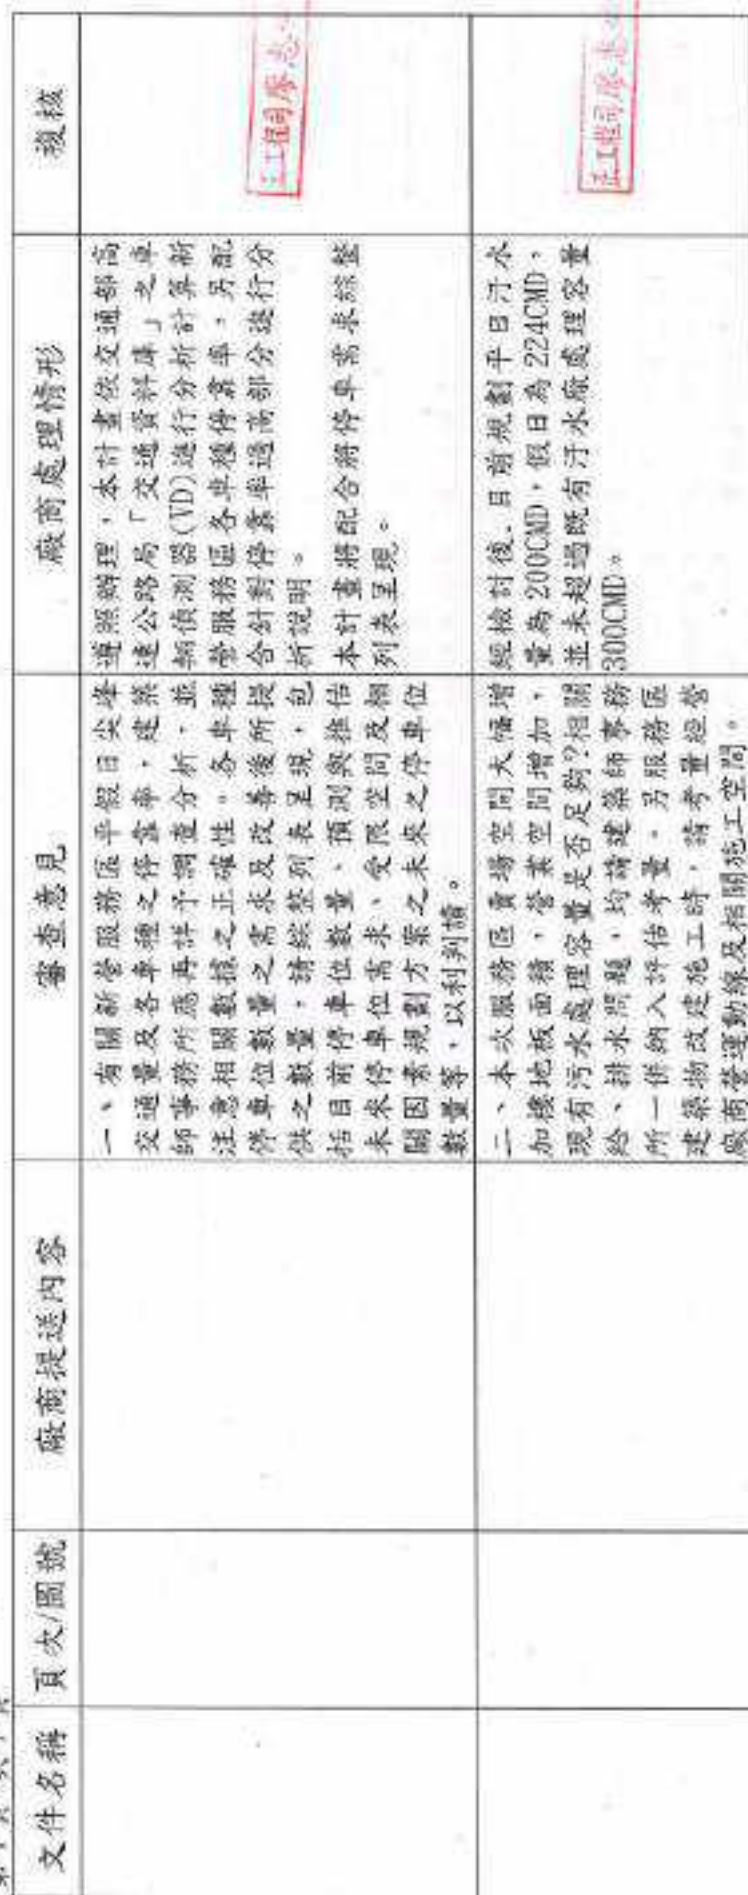 文件名稱
頁次/圖號
廠商提送內容
審查意見
廠商處理情形
複核
一、有關新營服務區平假日尖峰
交通量及各車種之停靠率,建築
師事務所應再詳予調查分析,並
注意相關數據之正確性。各車種
停車位數量之需求及改善後所提
供之數量,請綜整列表呈現,包
括目前停車位數量、預測與推估
未來停車位需求、受限空間及相
關因素規劃方案之未來之停車位
數量等,以利判讀。
遵照辦理,本計畫依交通部高
速公路局「交通資料庫」之車
輛偵測器(VD)進行分析計算新
營服務區各車種停靠率,另配
合針對停靠率過高部分進行分
析說明。
本計畫將配合將停車需求綜整
列表呈現。
正工程司廖惠
二、本次服務區賣場空間大幅增
加樓地板面積,營業空間增加,
現有污水處理容量是否足夠?相關
給、排水問題,均請建築師事務
所一併納入評估考量。另服務區
建築物改建施工時,請考量經營
廠商營運動線及相關施工空間。
經檢討後,目前規劃平日汙水
量為200CMD,假日為224CMD,
並未超過既有汙水廠處理容量
300CMD。
正工程司廖惠